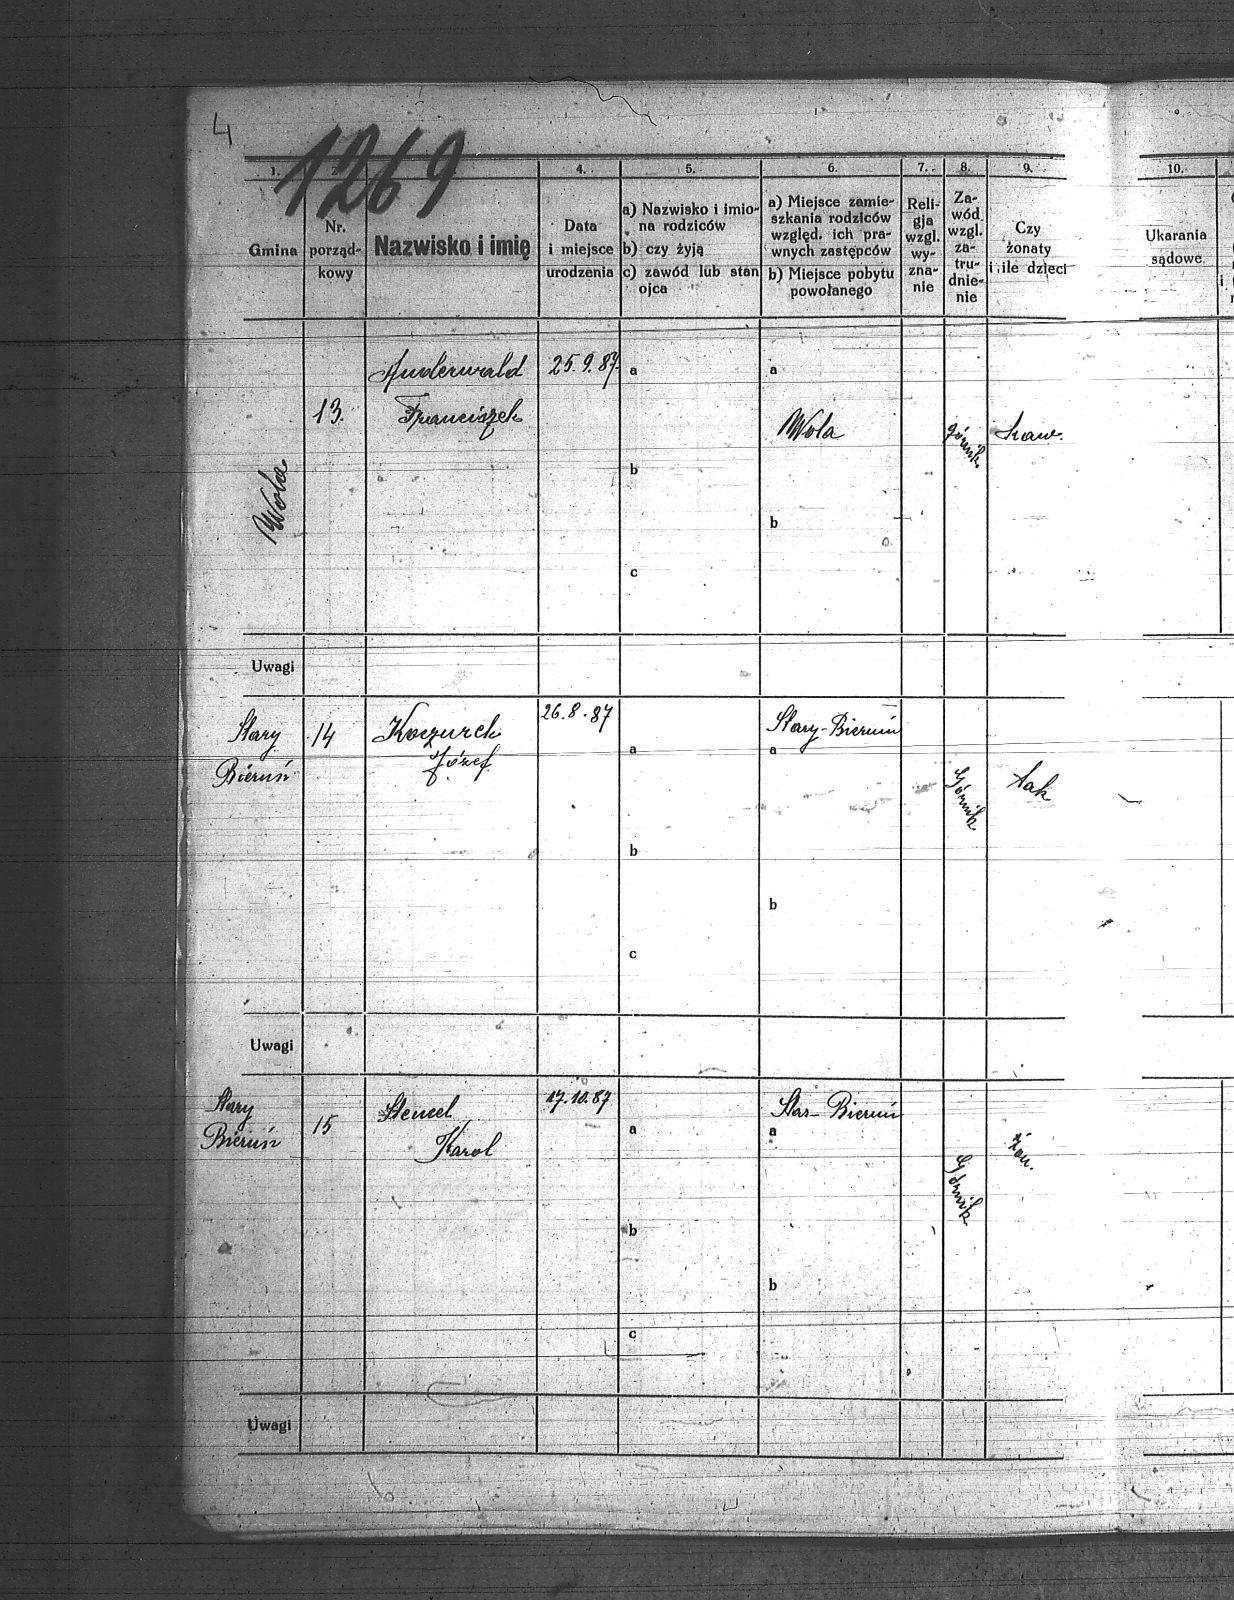 4
1269
1.
2.
4.
5.
6.
7.
8.
9.
10.
Gmina
Nr. porząd-
kowy
Nazwisko i imię
Data
i miejsce
urodzenia
a) Nazwisko i imio-
na rodziców
b) czy żyją
c) zawód lub stan
ojca
a) Miejsce zamie-
szkania rodziców
względ. ich pra-
wnych zastępców
b) Miejsce pobytu
powołanego
Reli-
gja
wzgl.
wy-
zna-
nie
Za-
wód
wzgl.
za-
tru-
dnie-
nie
Czy
żonaty
i ile dzieci
Ukarania
sądowe
Wola
13.
Anderwald
Franciszek
25.9.87.
a
b
c
a
Wola
b
górnik
kaw.
Uwagi
Stary
Bieruń
14
Koczurek
Józef
26.8.87
a
b
c
Stary-Bieruń
a
b
Górnik
tak
Uwagi
Stary
Bieruń
15
Stencel
Karol
17.10.87
a
b
c
Star-Bieruń
a
b
Górnik
żon.
Uwagi